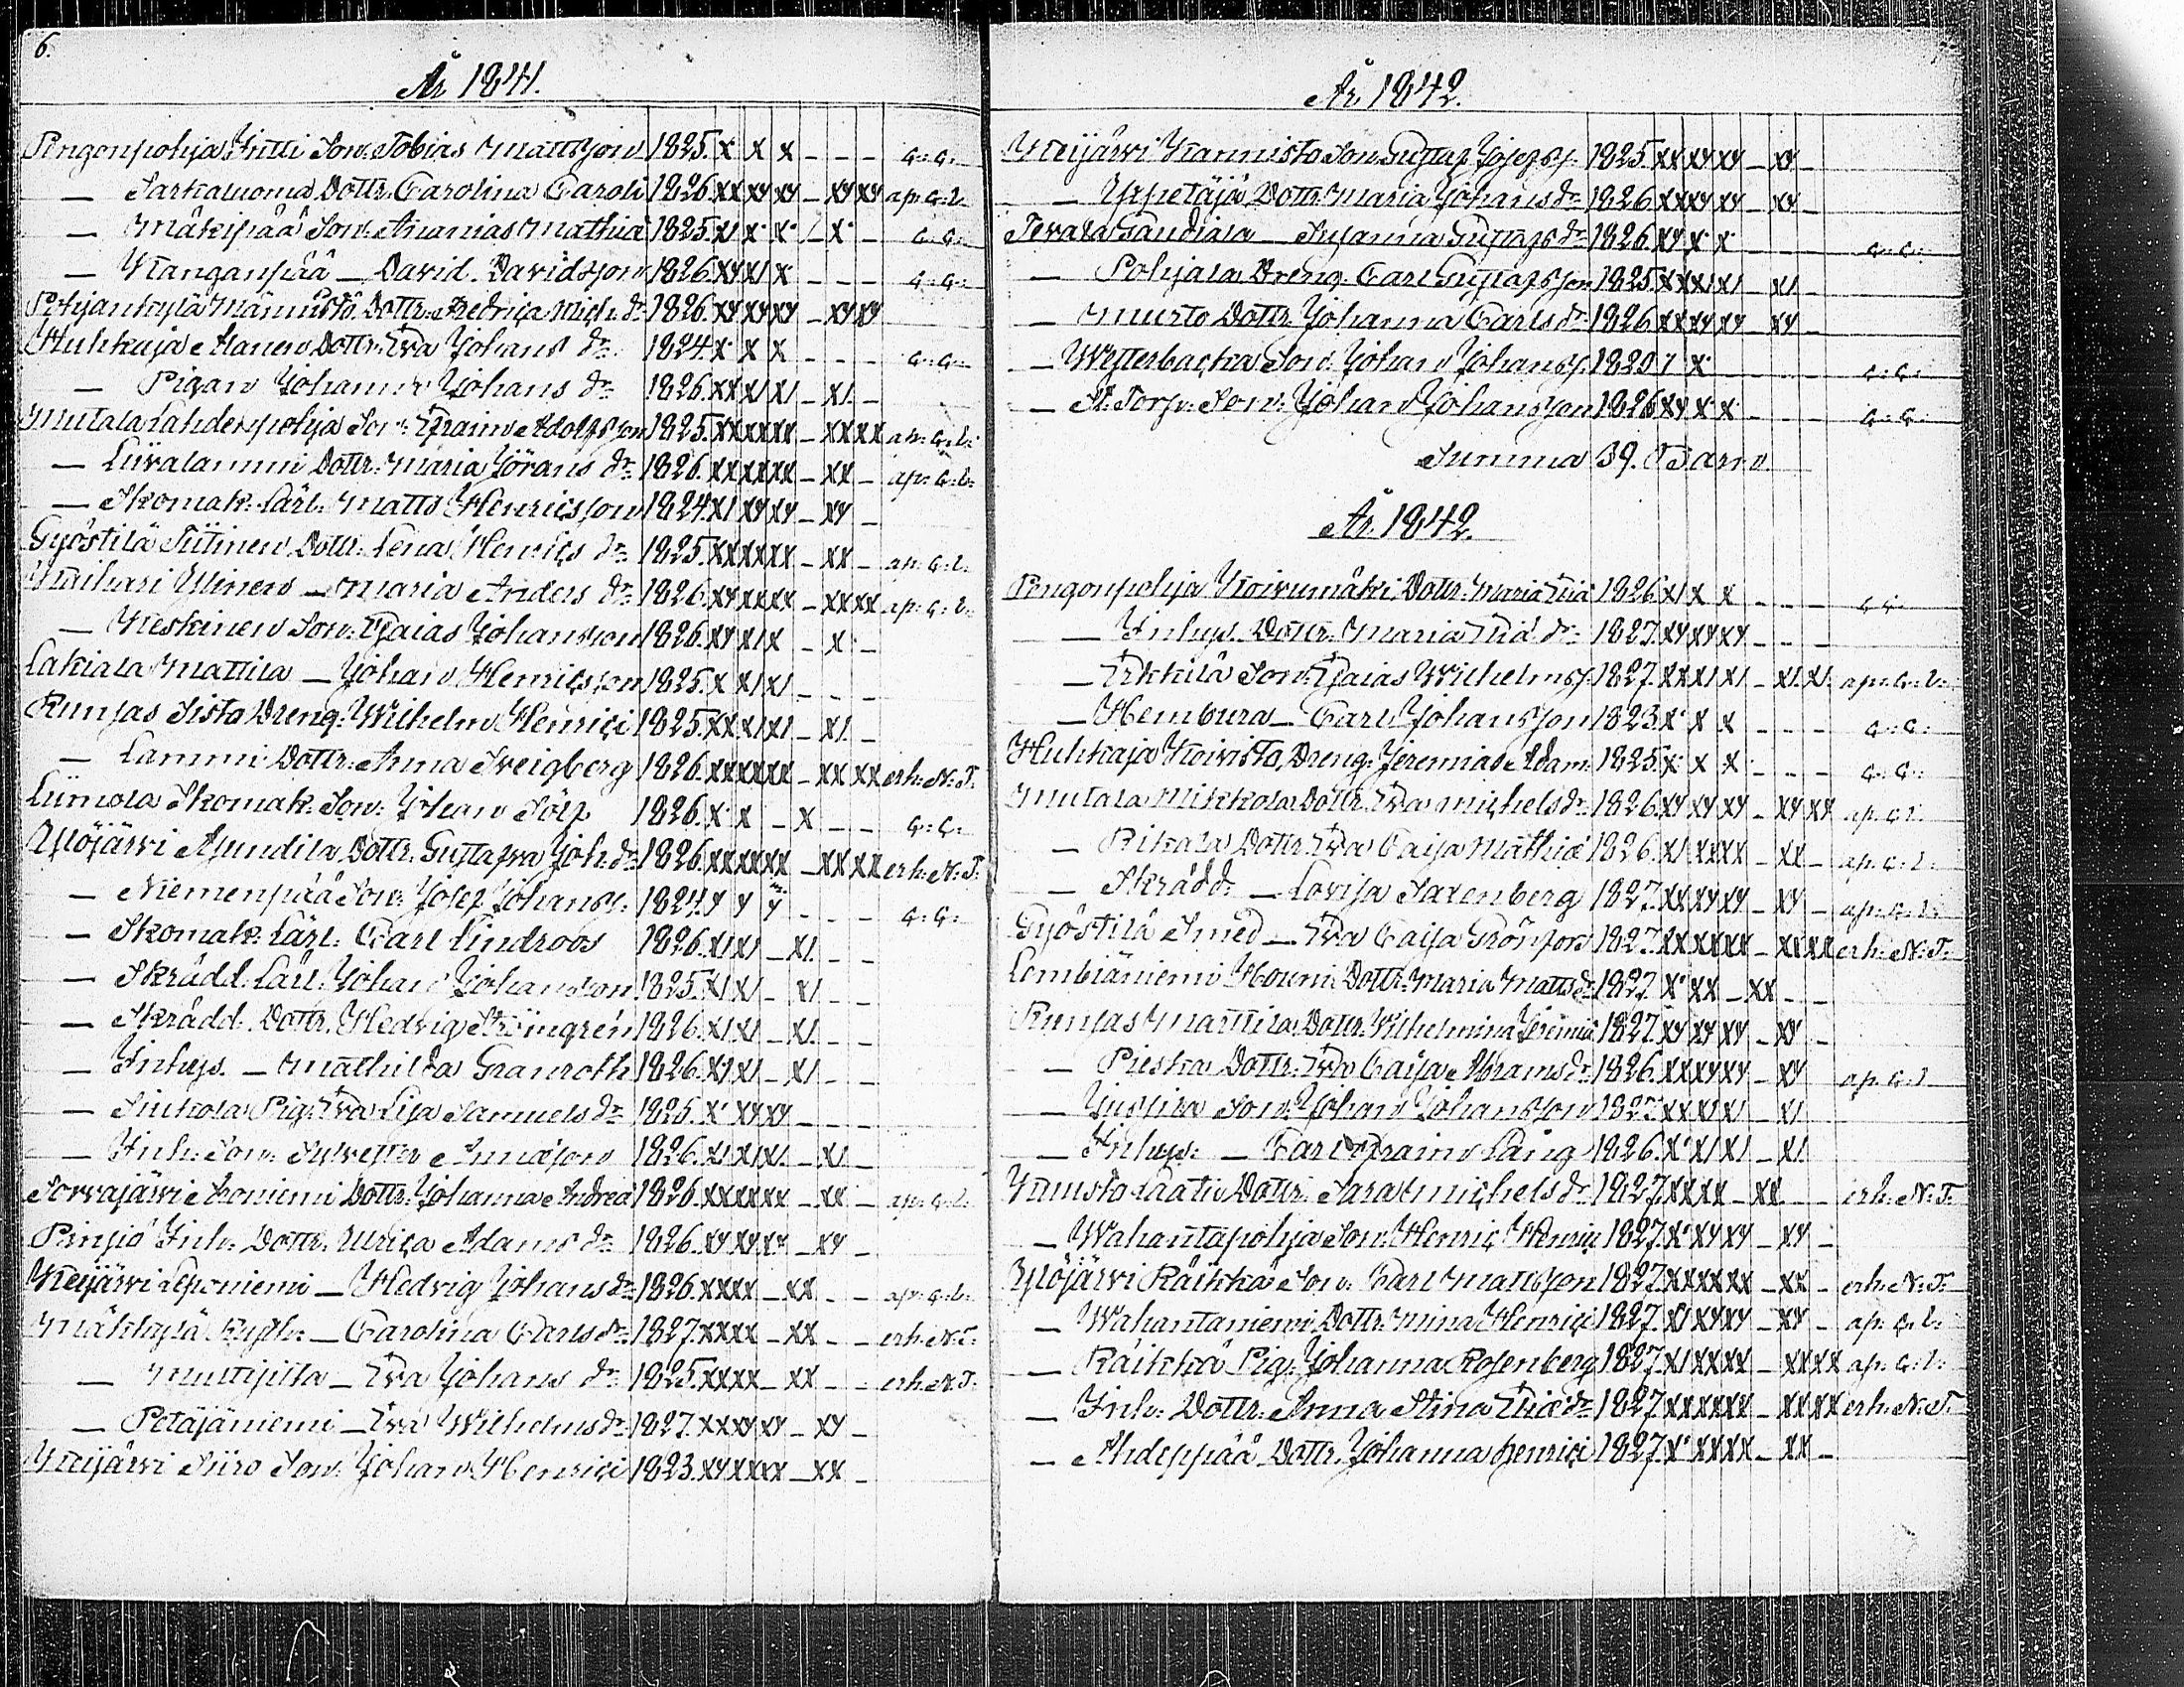 6.
År 1841.
Pengonpohja Frilli Son. Tobias Mattsson 1825. x x x _ _ _ G: G:
_ Sarkaluoma Dottr. Carolina Caroli 1826. xx xy xy _ xy xy ap: G: l:
_ Mäkipää Son. Ananias Mathiæ 1825 x/ x x _ x _ G: G:
_ Kanganpää _ David Davidsson 1826. xy x/ x _ _ _ G: G:
Pohjankylä Männistö Dottr. Fredrica Mich: dr 1826. xy xy xy _ xy xy
Huhkaja Manen Dottr. Eva Johans dr 1824. x x x _ _ _ G: G:
_ Pigan Johanna Johans dr 1826. xx x/ x/ _ x/ _
Mutala Lahdenpohja Son: Efraim Adolfsson 1825. xx xx xx _ xx xx ap: G: l:
_ Liivalammi Dottr: Maria Jörans dr 1826. xx xx xx _ xx _ ap: G: l:
_ Skomak: Lärl: Matts Henricsson 1824. x/ xy xy _ xy _
Gyöstilä Tiitinen Dottr. Lena Henrics dr 1825. xx xx xx _ xx _ ap: G: l:
Kaihari Ylinen _ Maria Anders dr 1826. xy xx xx _ xx xx ap: G: l:
_ Keskinen Son: Esaias Johansson 1826. xy x/ x _ x _
Lakiala Mattila _ Johan Henricsson 1825. x x/ x/ _ _ _
Runsas Sisto Dreng: Wilhelm Henrici 1825. xx x/ x/ _ x/ _
_ Lammi Dottr. Anna Sveigberg 1826. xx xx xx _ xx xx erh: N: T:
Liimola Skomak: Son: Johan Sölf 1826. x x _ x _ _ G: G:
Ylöjärvi Asundila Dottr. Gustafva Joh: dr 1826. xx xx xx _ xx xx erh: N: T:
_ Niemenpää Son: Josef Johanss: 1824. y y y _ _ _ G: G:
_ Skomak: Lärl: Carl Lindroos 1826. x/ x/ _ x/ _ _
_ Skrädd: Lärl: Johan Johansson 1825. x/ x/ _ x/ _ _
_ Skrädd. Dottr. Hedvig Strömgrén 1826. x/ x/ _ x/ _ _
_ Inhys. _ Mathilda Granroth 1826. x/ x/ _ x/ _ _
_ Siukola Pig. Eva Lisa Samuels dr 1826. x xy xy _ _ _
_ Inh: Son: Sylvester Annæson 1826. x/ x/ x/ _ x/ _
Sorvajärvi Aoniemi Dottr. Johanna Andreæ 1826. xx xx xx _ xx _ ap: G: l:
Pinsiö Inh: Dottr. Ulrica Adams dr 1826. xy xy xy _ xy _
Keijärvi Leponiemi _ Hedvig Johans dr 1826. xx xx _ xx _ _ ap: G: l:
Mäkkylä _ Carolina Carls dr 1827. xx xx _ xx _ _ erh: N: T:
_ Eva Johans dr 1825. xx xx _ xx _ _ erh: N: T:
_ Petäjäniemi _ Eva Wilhelms dr 1827. xx xy xy _ xy _
Keijärvi Siiro Son: Johan Henrici 1823. xy xx xx _ xx _
År 1842.
Keijärvi Kannisto Son Gustaf Josefss: 1825. xx xy xy _ xy _
_ Yppetäjä Dottr: Maria Johans dr 1826. xx xy xy _ xy _
Tevala Sandiala _ Susanna Gustafs dr 1826. xy x x _ _ _ G: G:
_ Pohjala Dreng. Carl Gustafsson 1825. xx x/ x/ _ x/ _
_ Murto Dottr. Johanna Carls dr 1826. xx xy xy _ xy _
_ Westerbacka Son: Johan Johanss: 1820 x G: G:
_ St. Torp. Son: Johan Johansson 1826 xy x x _ G: G:
Summa 39. Barn.
År 1842.
Pengonpohja Koivumäki Dottr. Maria Eliæ 1826. x/ x x _ _ _ G: G:
_ Inhys. Dottr: Maria Eliæ dr 1827. xy xy xy _ _ _
_ Erkkilä Son: Esaias Wilhelmss: 1827. xx x/ x/ _ x/ x/ ap: G: l:
_ Hembura _ Carl Johansson 1823. x x x _ _ _ G: G:
Huhkaja Koivisto, Dreng. Jeremias Adam: 1825. x x x _ _ _ G: G:
Mutala Mikkola Dottr. Eva Michels dr 1826. xy xy xy _ xy xx ap: G: l:
_ Rikala Dottr. Eva Caisa Mathiæ 1826. x/ xx xx _ xx _ ap: G: l:
_ Skrädd: _ Lovisa Saxenberg 1827. xx xy xy _ xy _ ap: G: l:
Gyöstilä Smed _ Eva Caisa Grönfors 1827. xx xx xx _ xx xx erh: N: T:
Lembiäniemi Houni Dottr. Maria Matts dr 1827. x xx _ xx _ _
Runsas Marttila Dottr. Wilhelmina Jeremiæ 1827. xy xy xy _ xy _
_ Pieska Dottr. Eva Caisa Abrams dr 1826. xx xy xy _ xy ap: G: l:
_ Jussila Son: Johan Johansson 1827. xx x/ x/ _ x/
_ Inhys: _ Carl Efraim Lång 1826. x x/ x/ _ x/
Kuusto Laati Dottr. Sara Michels dr 1827. xx xx _ xx _ _ erh: N: T:
_ Wahantapohja Son: Henric Henrici 1827. x xy xy _ xy _
Ylöjärvi Räikkä Son: Carl Mattsson 1827. xx xx xx _ xx _ erh: N: T:
_ Wahantaniemi Dottr. Mina Henrici 1827. x/ xy xy _ xy _ ap: G: l:
_ Räikkä Pig. Johanna Rosenberg 1827. x/ xx xx _ xx xx ap: G: l:
_ Inh: Dottr. Anna Stina Eliæ dr 1827. xx xx xx _ xx xx erh: N: T:
_ Ahdeppää Dottr. Johanna Henrici 1827. x xx xx _ xx _